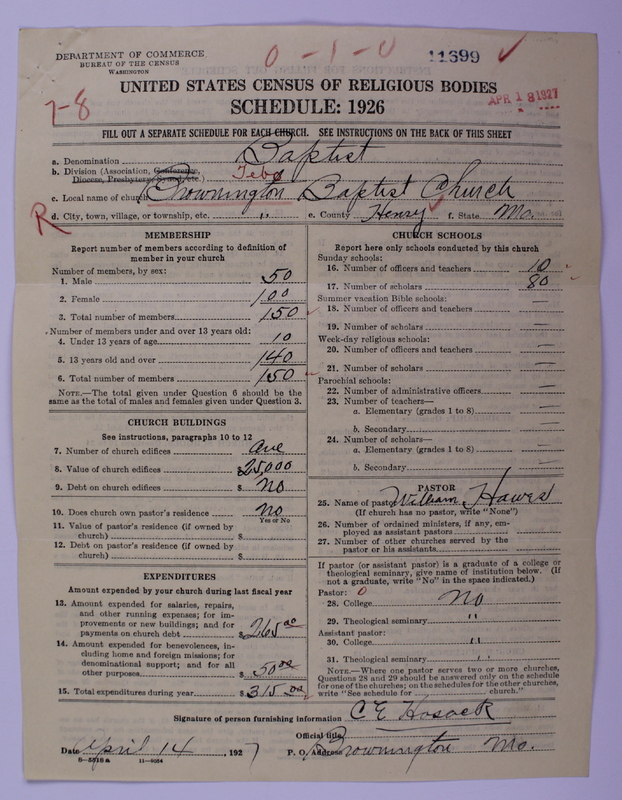 DEPARTMENT OF COMMERCE
BUREAU OF THE CENSUS
WASHINGTON
0 - 1 - 0
11699
7-8
APR 18 1927
UNITED STATES CENSUS OF RELIGIOUS BODIES
SCHEDULE: 1926
FILL OUT A SEPARATE SCHEDULE FOR EACH CHURCH. SEE INSTRUCTIONS ON THE BACK OF THIS SHEET
a. Denomination Baptist
b. Division (Association, Conference, Diocese, Presbytery, Synod, etc.) Tebo
c. Local name of church Brownington Baptist Church
R
d. City, town, village, or township, etc. " e. County Henry f. State Mo.
MEMBERSHIP
Report number of members according to definition of member in your church
Number of members, by sex:
1. Male 50
2. Female 100
3. Total number of members 150
Number of members under and over 13 years old:
4. Under 13 years of age 10
5. 13 years old and over 140
6. Total number of members 150
NOTE.—The total given under Question 6 should be the same as the total of males and females given under Question 3.
CHURCH BUILDINGS
See instructions, paragraphs 10 to 12
7. Number of church edifices one
8. Value of church edifices $25,000
9. Debt on church edifices $ No
10. Does church own pastor's residence No
Yes or No
11. Value of pastor's residence (if owned by church) $
12. Debt on pastor's residence (if owned by church) $
EXPENDITURES
Amount expended by your church during last fiscal year
13. Amount expended for salaries, repairs, and other running expenses; for improvements or new buildings; and for payments on church debt $265.00
14. Amount expended for benevolences, including home and foreign missions; for denominational support; and for all other purposes $50.00
15. Total expenditures during year $315.00
CHURCH SCHOOLS
Report here only schools conducted by this church
Sunday schools:
16. Number of officers and teachers 10
17. Number of scholars 80
Summer vacation Bible schools:
18. Number of officers and teachers —
19. Number of scholars —
Week-day religious schools:
20. Number of officers and teachers —
21. Number of scholars —
Parochial schools:
22. Number of administrative officers —
23. Number of teachers—
a. Elementary (grades 1 to 8) —
b. Secondary —
24. Number of scholars—
a. Elementary (grades 1 to 8) —
b. Secondary —
PASTOR
25. Name of pastor William Hawes
(If church has no pastor, write "None")
26. Number of ordained ministers, if any, employed as assistant pastors
27. Number of other churches served by the pastor or his assistants
If pastor (or assistant pastor) is a graduate of a college or theological seminary, give name of institution below. (If not a graduate, write "No" in the space indicated.)
Pastor: 0
28. College No
29. Theological seminary "
Assistant pastor:
30. College "
31. Theological seminary "
NOTE.—Where one pastor serves two or more churches, Questions 28 and 29 should be answered only on the schedule for one of the churches; on the schedules for the other churches, write "See schedule for church."
Signature of person furnishing information C E Hosack
Official title
Date April 14, 1927 P. O. Address Brownington Mo.
8—5518a 11—9084